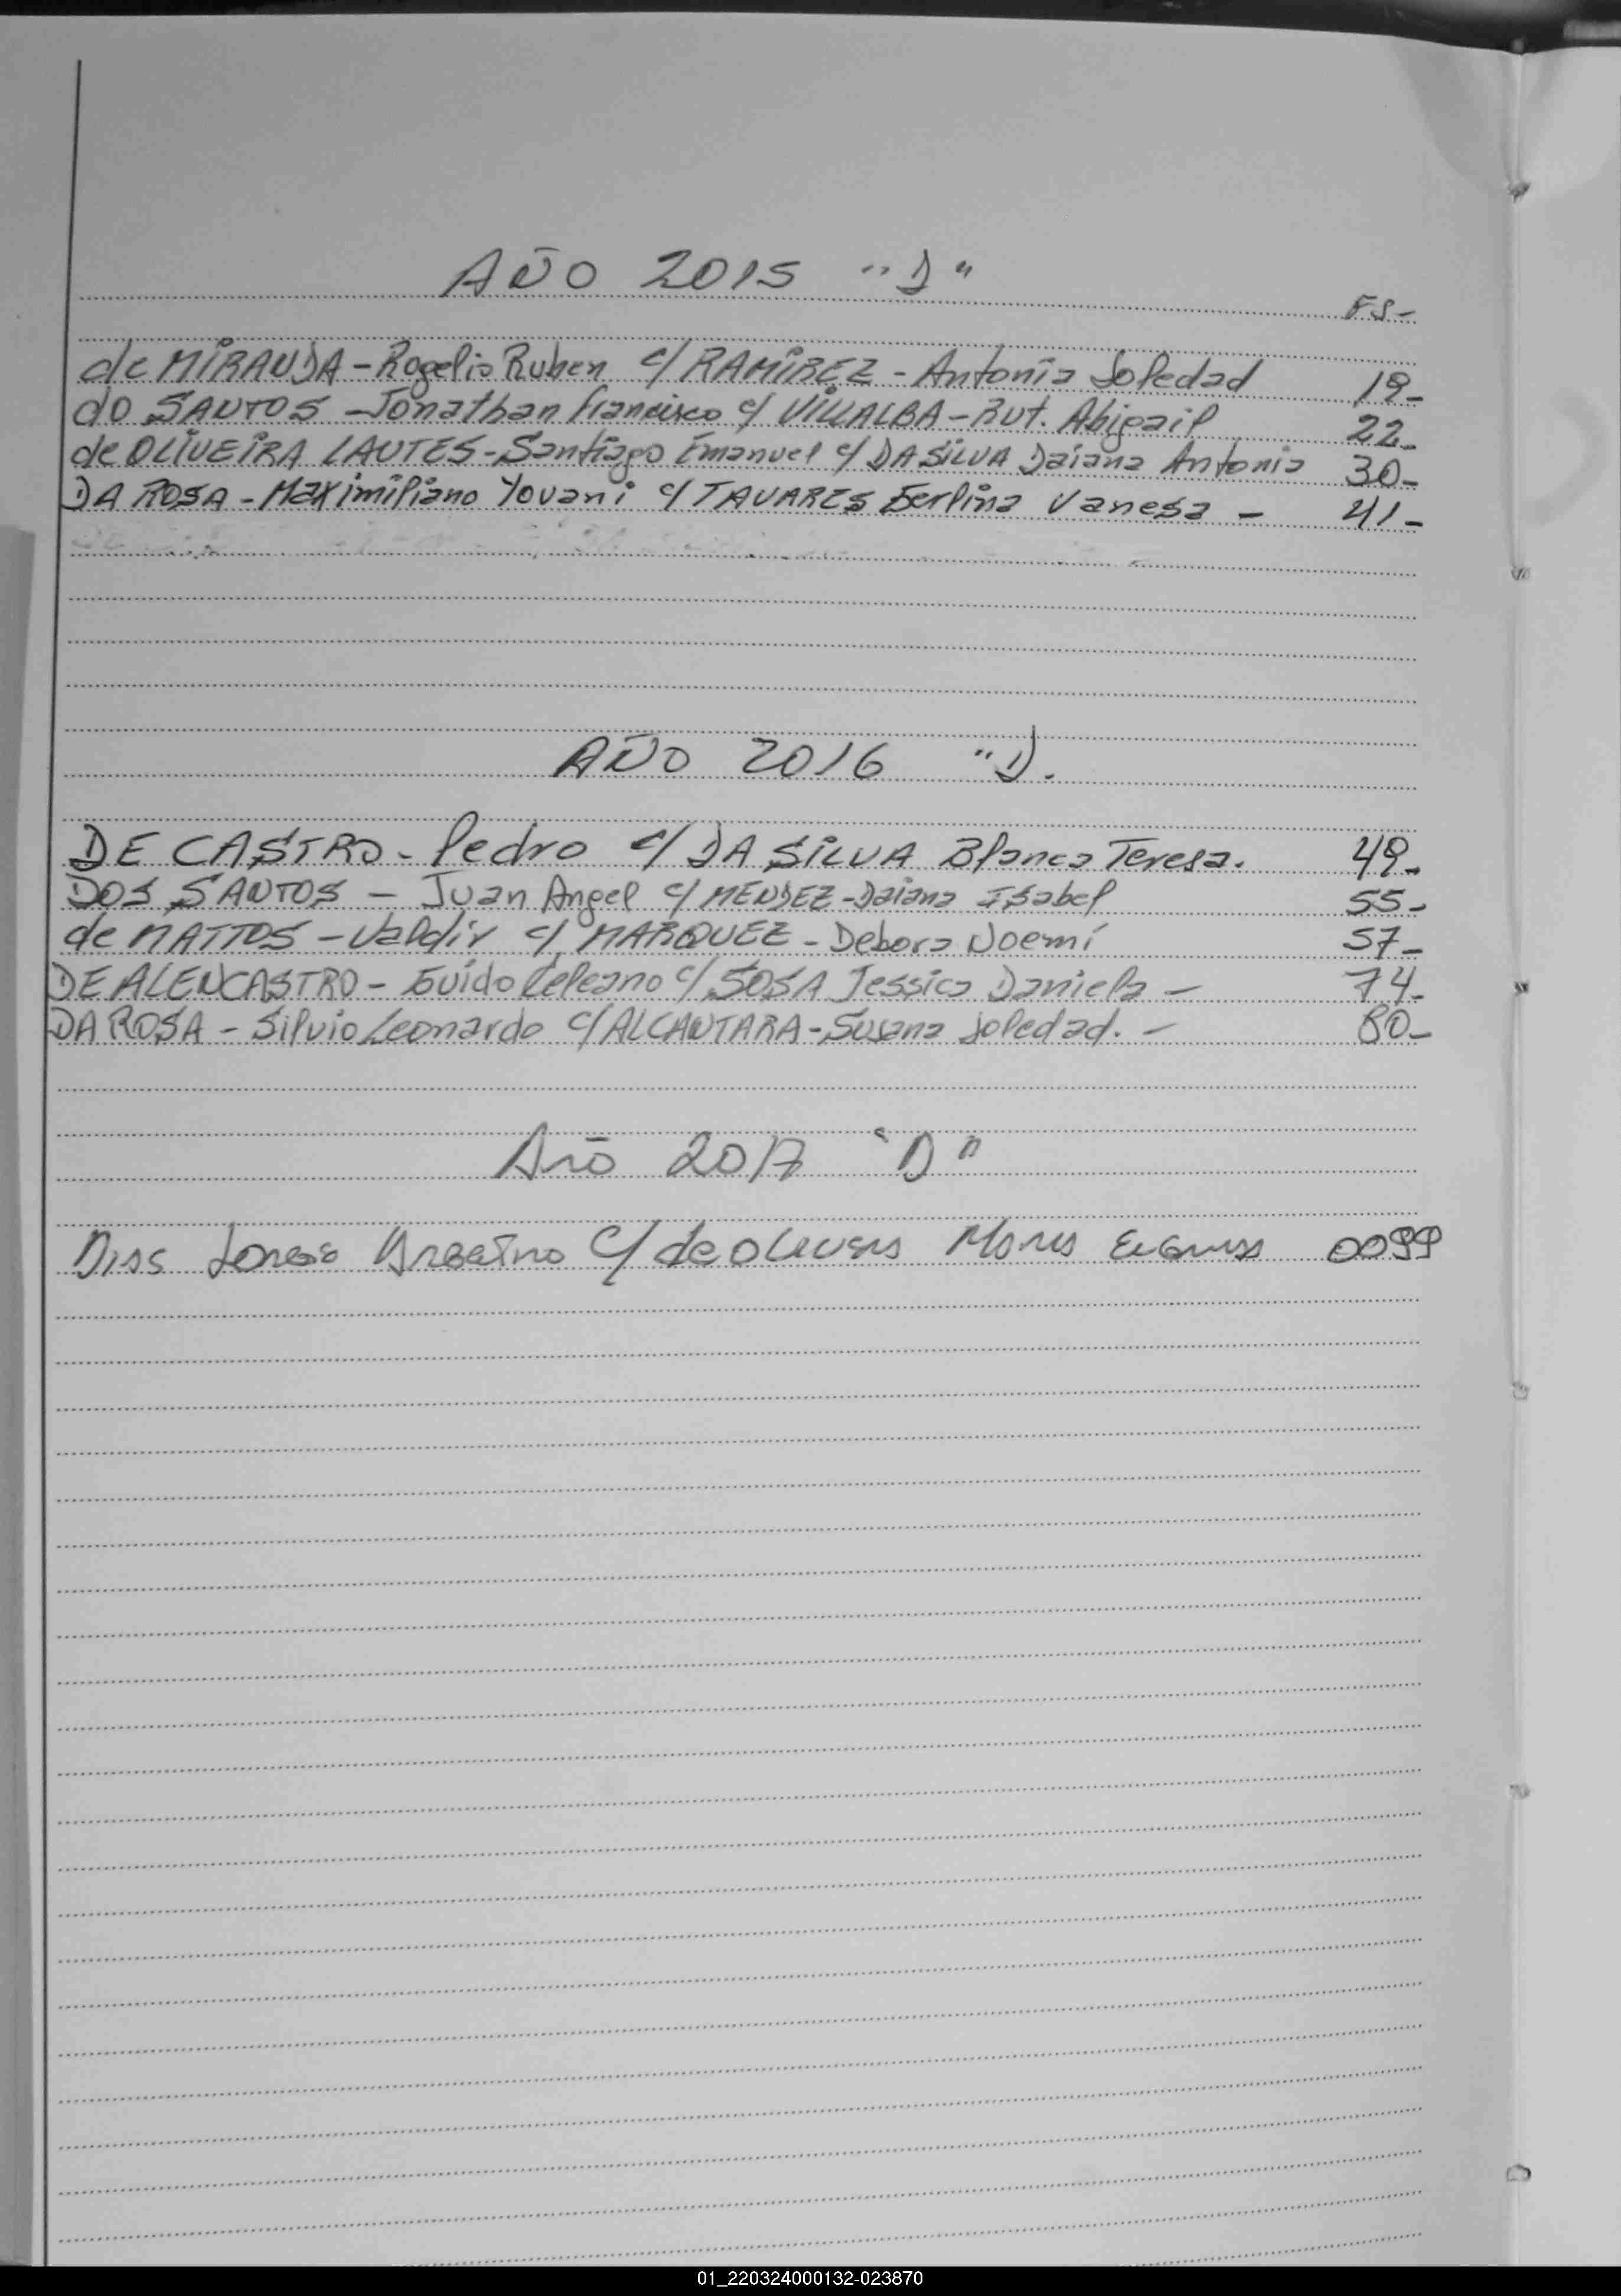 AÑO 2015 "D"
FS-
de MIRANDA - Rogelio Ruben c/ RAMIREZ - Antonia Soledad 19-
do SANTOS - Jonathan Francisco c/ VILLALBA - Rut. Abigail 22-
de OLIVEIRA LAUTES - Santiago Emanuel c/ DA SILVA Daiana Antonia 30-
DA ROSA - Maximiliano Yovani c/ TAVARES Vanesa - 41-
AÑO 2016 "D.
DE CASTRO - Pedro c/ DA SILVA Blanca Teresa. 49-
DOS SANTOS - Juan Angel c/ MENDEZ - Daiana Isabel 55-
de MATTOS - Valdir c/ MARQUEZ - Debora Noemí 57-
DE ALENCASTRO - Guido c/ SOSA Jessica Daniela - 74-
DA ROSA - Silvio Leonardo c/ ALCANTARA - Susana Soledad. - 80-
Año 2017 "D"
Dias c/ de Olivera 0099
01_220324000132-023870